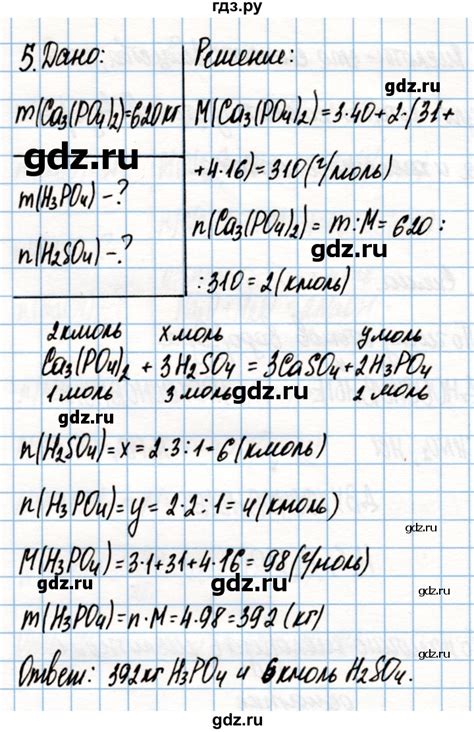 гдз.ру
5. Дано:
m(Ca₃(PO₄)₂)=620кг
m(H₃PO₄) -?
n(H₂SO₄) -?
Решение:
gdz.ru
M(Ca₃(PO₄)₂)=3·40+2·(31+
gdz.ru
+4·16)=310(г/моль)
n(Ca₃(PO₄)₂)= m:M= 620:
gdz.ru
:310=2(кмоль)
2кмоль x моль y моль
Ca₃(PO₄)₂ + 3H₂SO₄ = 3CaSO₄+2H₃PO₄
1 моль 3 моль 2 моль
gdz.ru
gdz.ru
n(H₂SO₄)=x=2·3:1=6(кмоль)
gdz.ru
n(H₃PO₄)=y=2·2:1=4(кмоль)
gdz.ru
M(H₃PO₄)=3·1+31+4·16=98(г/моль)
gdz.ru
gdz.ru
m(H₃PO₄)=n·M=4·98=392(кг)
Ответ: 392кг H₃PO₄ и 6кмоль H₂SO₄.
gdz.ru
gdz.ru